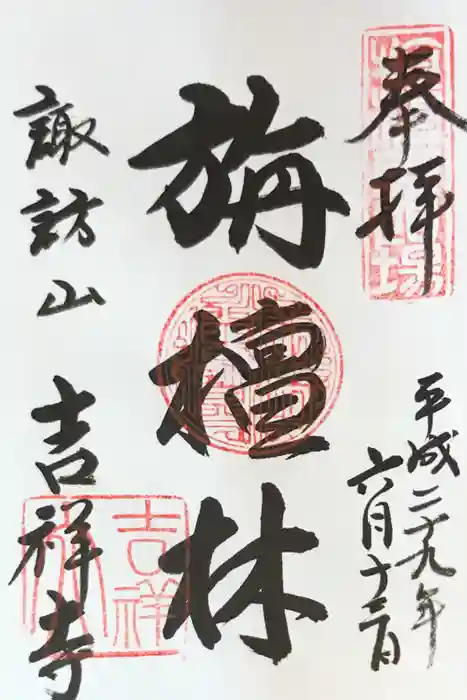 奉拝
平成二十九年
六月十三日
旃檀林
諏訪山
吉祥寺
吉祥